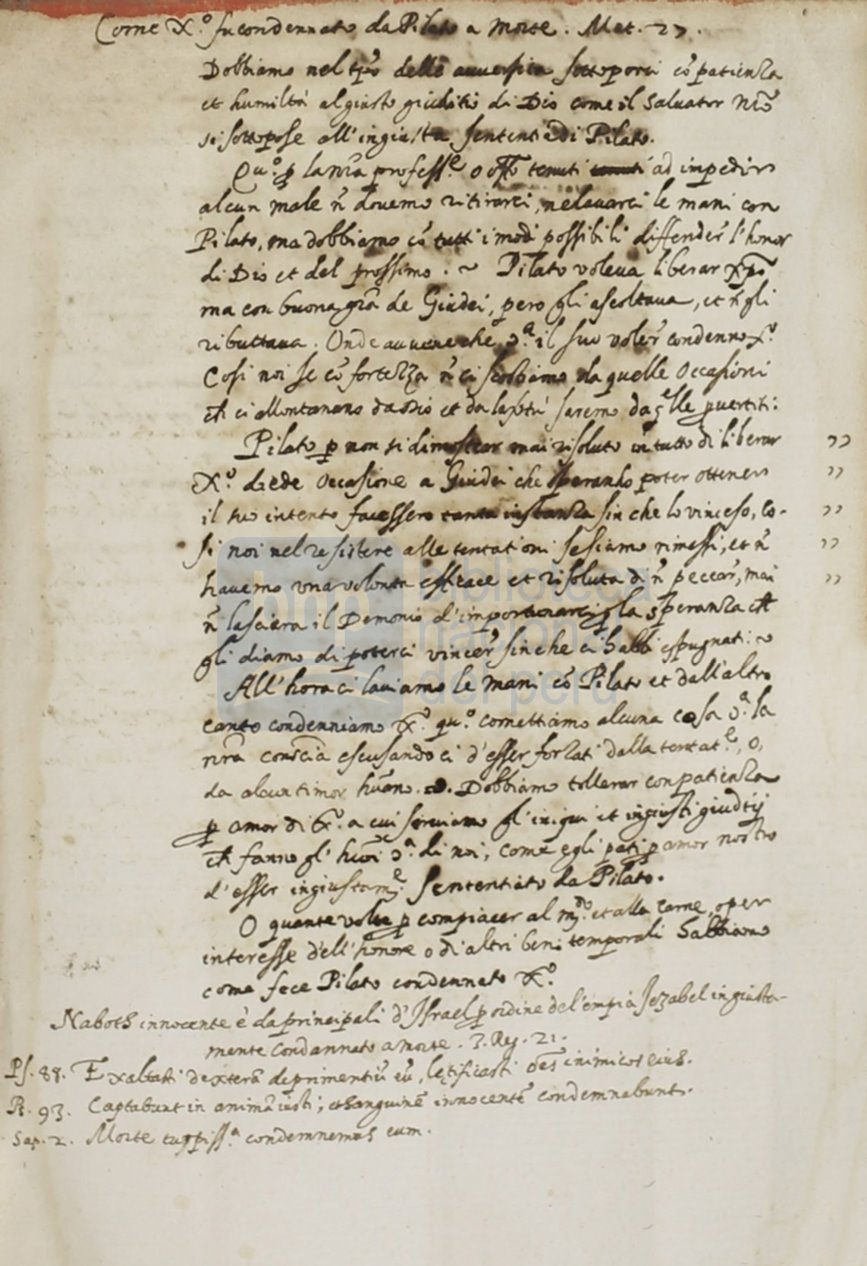 Come X.º fu condennato da Pilato a morte. Mat. 27.
Dobbiamo nel tp̃o delle auuersita sottoporci cõ patienza
et humiltà al giusto giuditio di Dio come il Saluator nr̃o
si sottopose all'ingiusta sententia di Pilato.
Qu.º p la nr̃a profess.e o offo tenuti ad impedire
alcun male ñ douemo ritirarci, ne lauarci le mani con
Pilato, ma dobbiamo cõ tutti i modi possibili diffender l'honor
di Dio et del prossimo. ~ Pilato voleua liberar Xp̃o
ma con buona grã de Giudei, pero gli ascoltaua, et ñ gli
ributtaua. Onde auuene che 𝔠.a il suo voler condenno X.º
Cosi noi se cõ fortezza ñ ci scostiamo da quelle occasioni
ch ci allontanano da Dio et da la virtù saremo da q̃lle puertiti:
Pilato p non si dimostrar mai risoluto in tutto di liberar
X.º diede occasione a Giudei che sperando poter ottener
il suo intento facessero tanta instanza sin che lo vinceso, co-
si noi nel resistere alle tentationi se siamo rimessi, et ñ
hauemo vna volonta efficace et risoluta di ñ peccar, mai
ñ lasciera il Demonio d'importunarci p la speranza ch
gli diamo di poterci vincer sin che ci habbi espugnati: ~
All'hora ci lauiamo le mani cõ Pilato et dall'altro
canto condenniamo X.º qu.º comettiamo alcuna cosa 𝔠.a la
nr̃a consc̃ia escusandoci d'esser forzati dalla tentat.e, o,
da alcun timor huãno. Dobbiamo tollerar con patienza
p amor di X.º a cui seruiamo gl'iniqui et ingiusti giuditij
ch fanno gl'huõi 𝔠.a di noi, come egli pati p amor nostro
d'esser ingiustam.e sententiato da Pilato.
O quante volte p compiacer al mdõ et alla carne, o per
interesse dell'honore o di altri beni temporali habbiamo
come fece Pilato condennato X.º
Naboth innocente è da principali d'Israel p ordine del'empia Jezabel ingiusta-
mente condannato a morte. 3. Reg. 21.
Ps. 88. Exaltasti dexterã deprimentiũ eũ, lętificasti oẽs inimicos eius.
Ps. 93. Captabunt in animã iusti, et sanguinẽ innocentẽ condemnabunt.
Sap. 2. Morte turpiss.a condemnemus eum.